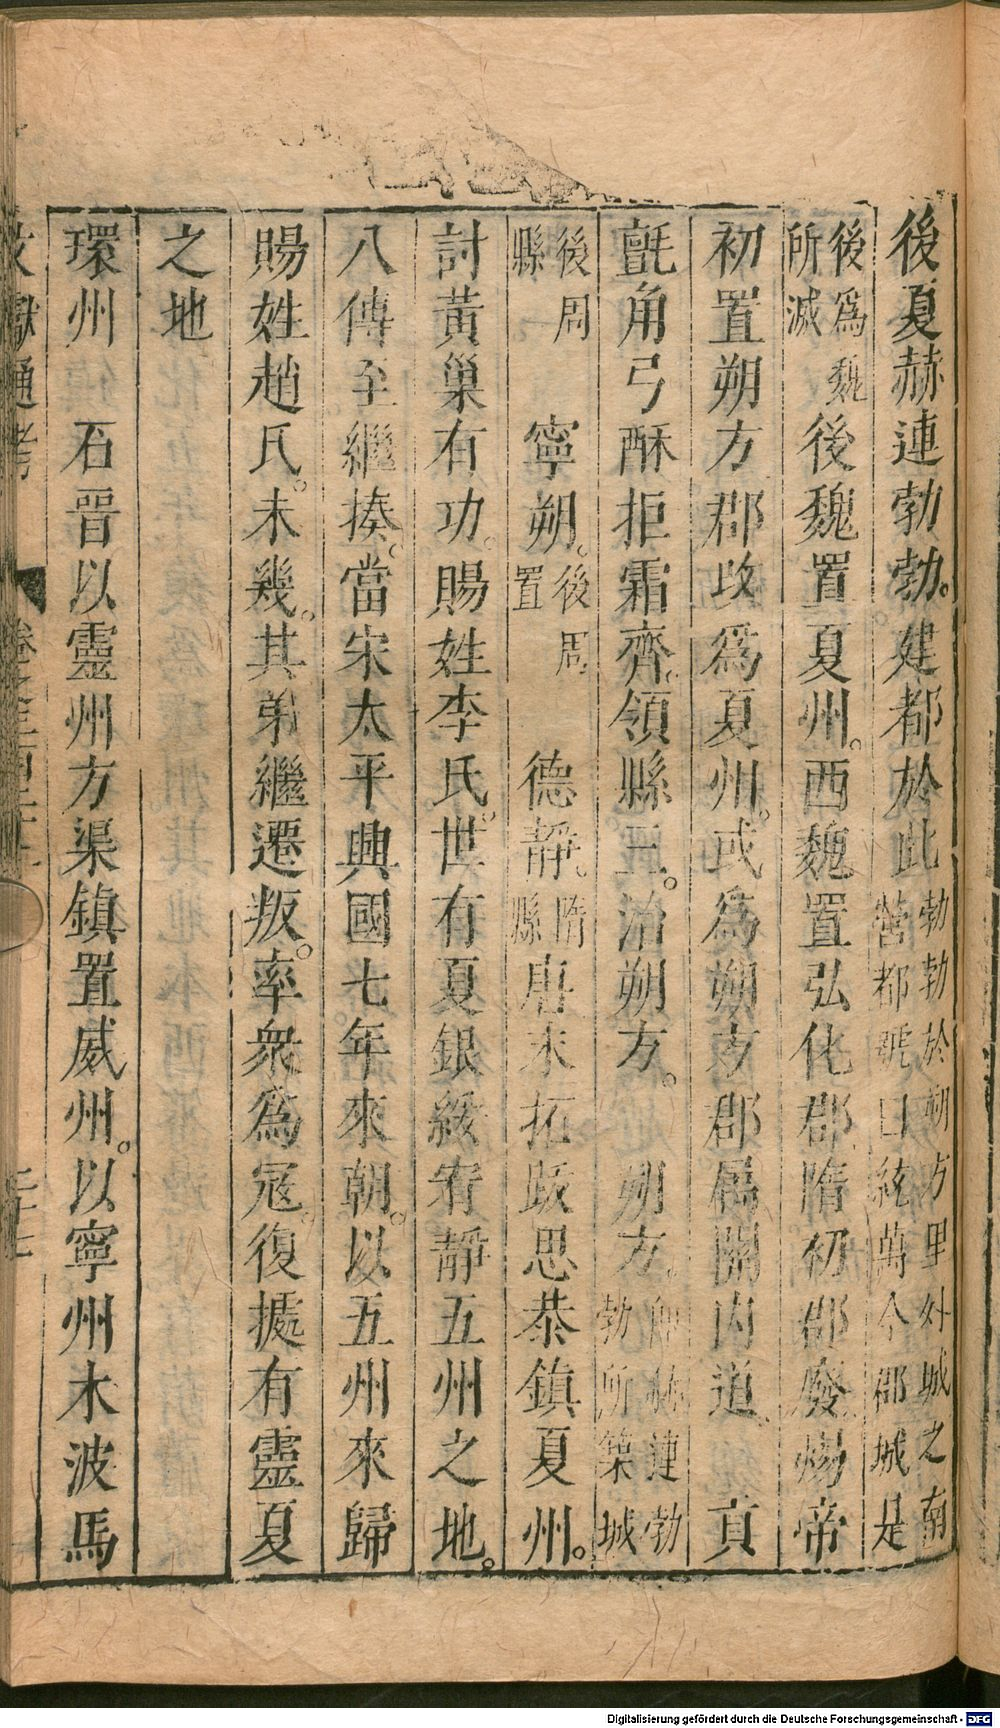 後夏赫連勃勃。建都於此勃勃於朔方黑水城之南營都號曰統萬今郡城是
後為魏所滅後魏置夏州。西魏置弘化郡隋初郡廢煬帝
初置朔方郡改為夏州。或為朔方郡屬關内道、貢
氊角弓酥拒霜薺。領縣三。治朔方。朔方。即赫連勃勃所築城
後周縣寧朔。後周置德靜隋縣唐末拓跋思恭鎮夏州。
討黃巢有功。賜姓李氏。世有夏銀綏宥靜五州之地。
八傳至繼捧。當宋太平興國七年來朝。以五州來歸
賜姓趙氏。未幾。其弟繼遷叛。率衆為冦。復據有靈夏
之地
環州 石晉以靈州方渠鎮置威州。以寧州木波馬
文獻通考 卷之三百二十二 二十七
Digitalisierung gefördert durch die Deutsche Forschungsgemeinschaft - DFG